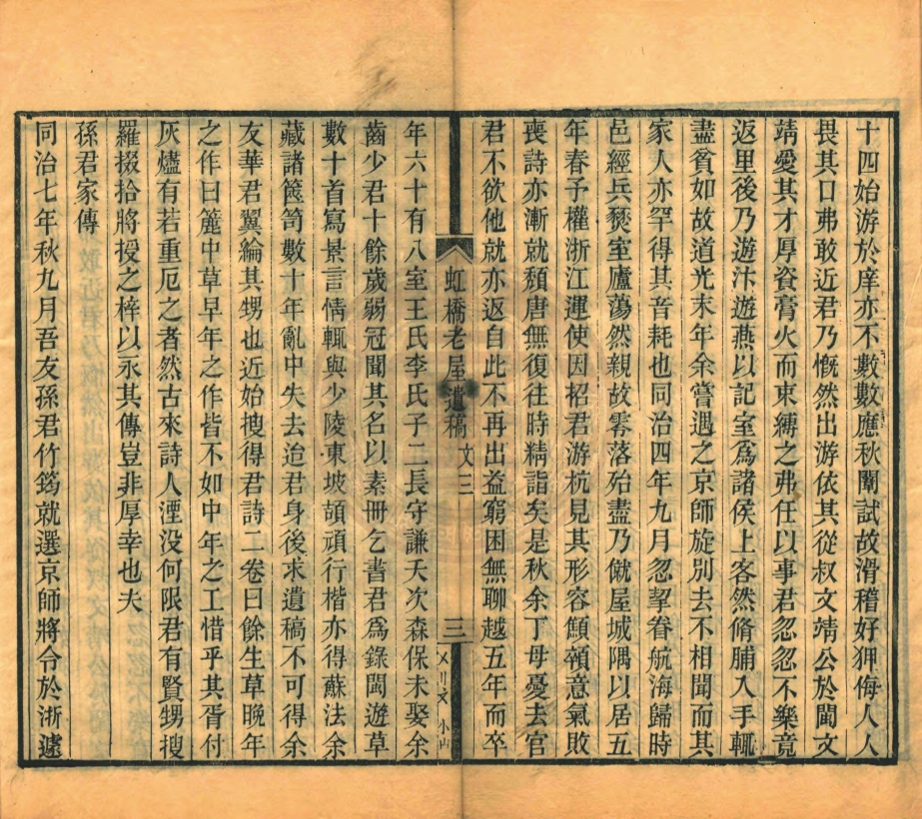 十四始游於庠亦不數數應秋闈試故滑稽好狎侮人人
畏其口弗敢近君乃慨然出游依其從叔文靖公於閩文
靖愛其才厚資膏火而束縛之弗任以事君忽忽不樂竟
返里後乃遊汴遊燕以記室爲諸侯上客然脩脯入手輒
盡貧如故道光末年余嘗遇之京師旋別去不相聞而其
家人亦罕得其音耗也同治四年九月忽挈眷航海歸時
邑經兵燹室廬蕩然親故零落殆盡乃僦屋城隅以居五
年春予權浙江運使因招君游杭見其形容顦顇意氣敗
喪詩亦漸就頹唐無復往時精詣矣是秋余丁母憂去官
君不欲他就亦返自此不再出益窮困無聊越五年而卒
虹橋老屋遺稿 文三 三
年六十有八室王氏李氏子二長守謙夭次森保未娶余
齒少君十餘歲弱冠聞其名以素冊乞書君爲錄閩遊草
數十首寫景言情輒與少陵東坡頡頏行楷亦得蘇法余
藏諸篋笥數十年亂中失去迨君身後求遺稿不可得余
友華君翼綸其甥也近始搜得君詩二卷曰餘生草晚年
之作曰簏中草早年之作皆不如中年之工惜乎其胥付
灰燼有若重厄之者然古來詩人湮没何限君有賢甥搜
羅掇拾將授之梓以永其傳豈非厚幸也夫
孫君家傳
同治七年秋九月吾友孫君竹筠就選京師將令於浙遽